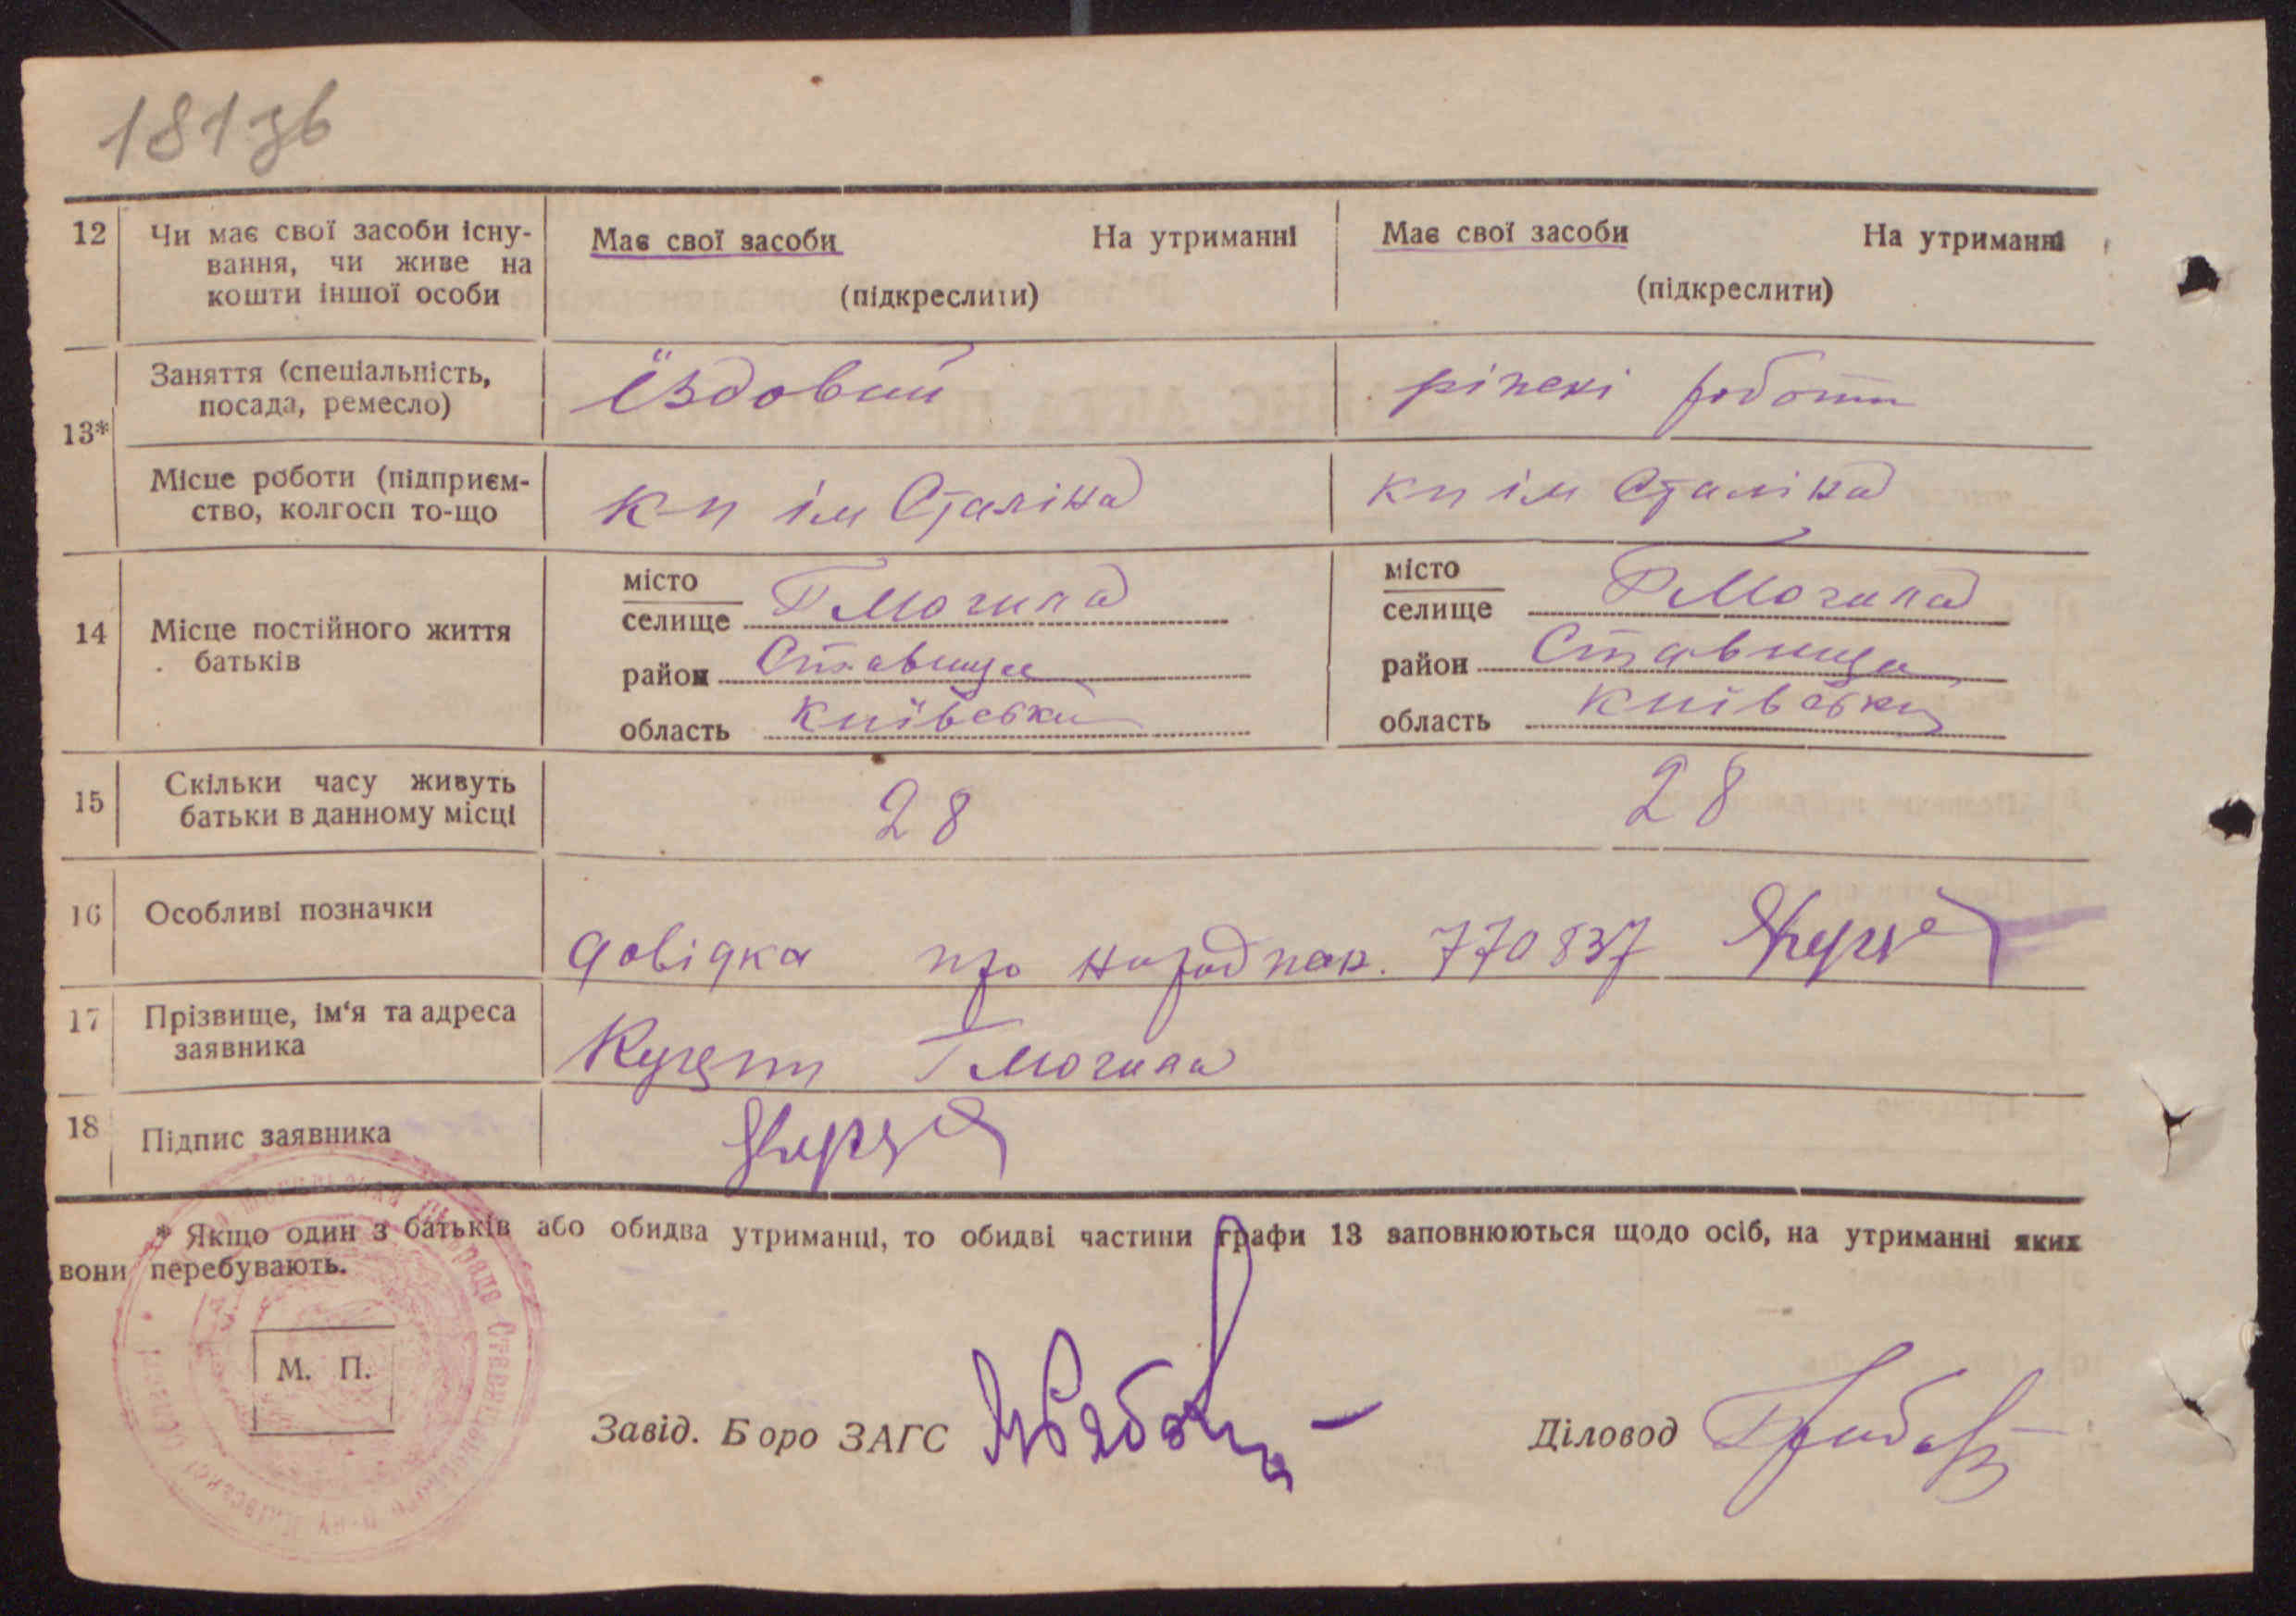 181зв
12 Чи має свої засоби існу-
вання, чи живе на
кошти іншої особи
Має свої засоби На утриманні
(підкреслити)
Має свої засоби На утриманні
(підкреслити)
13*
Заняття (спеціальність,
посада, ремесло)
Їздовий
різнекі роботи
Місце роботи (підприєм-
ство, колгосп то-що
к-п ім Сталіна
кп ім Сталіна
14 Місце постійного життя
батьків
місто
селище Г Могила
район Ставище
область Київськи
місто
селище Г Могила
район Ставище
область Київськи
15 Скільки часу живуть
батьки в данному місці
28
28
16 Особливі позначки
довідка про народжен. 770837
17 Прізвище, ім‘я та адреса
заявника
Г Могила
18 Підпис заявника
* Якщо один з батьків або обидва утриманці, то обидві частини графи 13 заповнюються щодо осіб, на утриманні яких
вони перебувають.
М. П.
Завід. Боро ЗАГС
Діловод